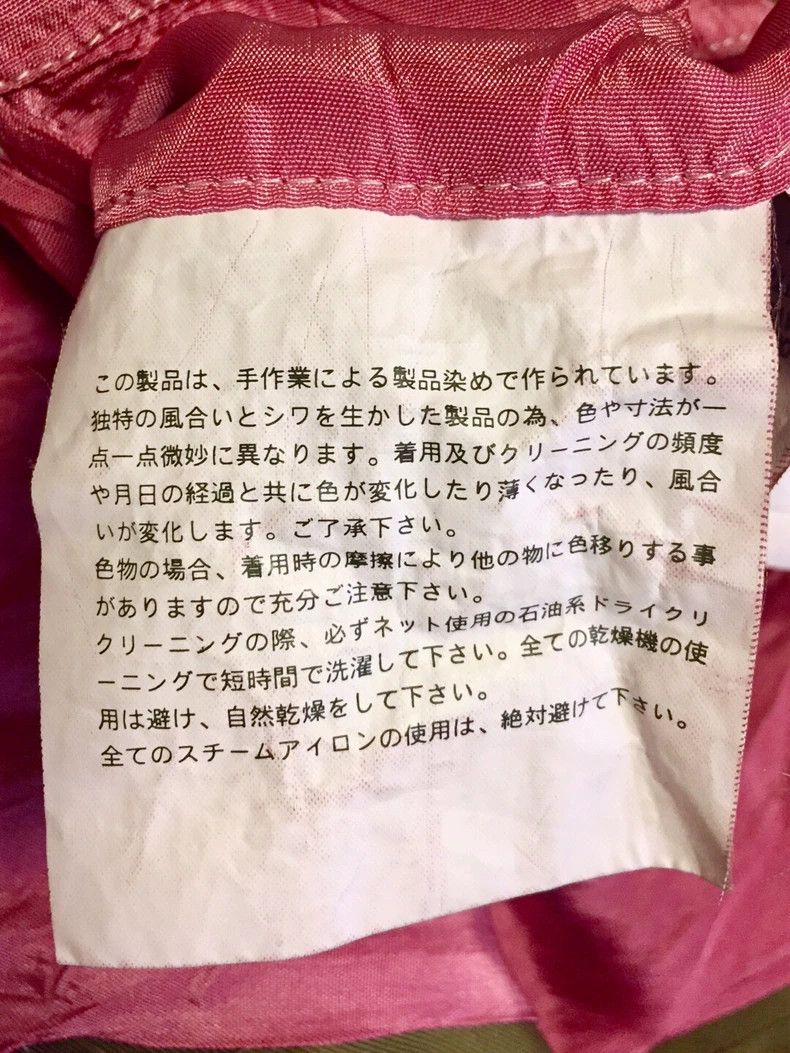 この製品は、手作業による製品染めで作られています。
独特の風合いとシワを生かした製品の為、色や寸法が一
点一点微妙に異なります。着用及びクリーニングの頻度
や月日の経過と共に色が変化したり薄くなったり、風合
いが変化します。ご了承下さい。
色物の場合、着用時の摩擦により他の物に色移りする事
がありますので充分ご注意下さい。
クリーニングの際、必ずネット使用の石油系ドライクリ
ーニングで短時間で洗濯して下さい。全ての乾燥機の使
用は避け、自然乾燥をして下さい。
全てのスチームアイロンの使用は、絶対避けて下さい。